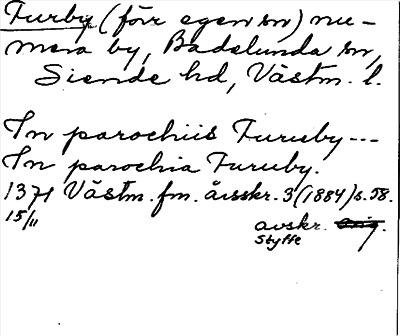 Furby (förr egen sn) nu-
mera by, Badelunda sn,
Siende hd, Västm. l.
In parochiis Furuby---
In parochia Furuby.
1371 Västm. fm. årsskr. 3 (1884) s. 58.
15/11 avskr. Orig.
Styffe